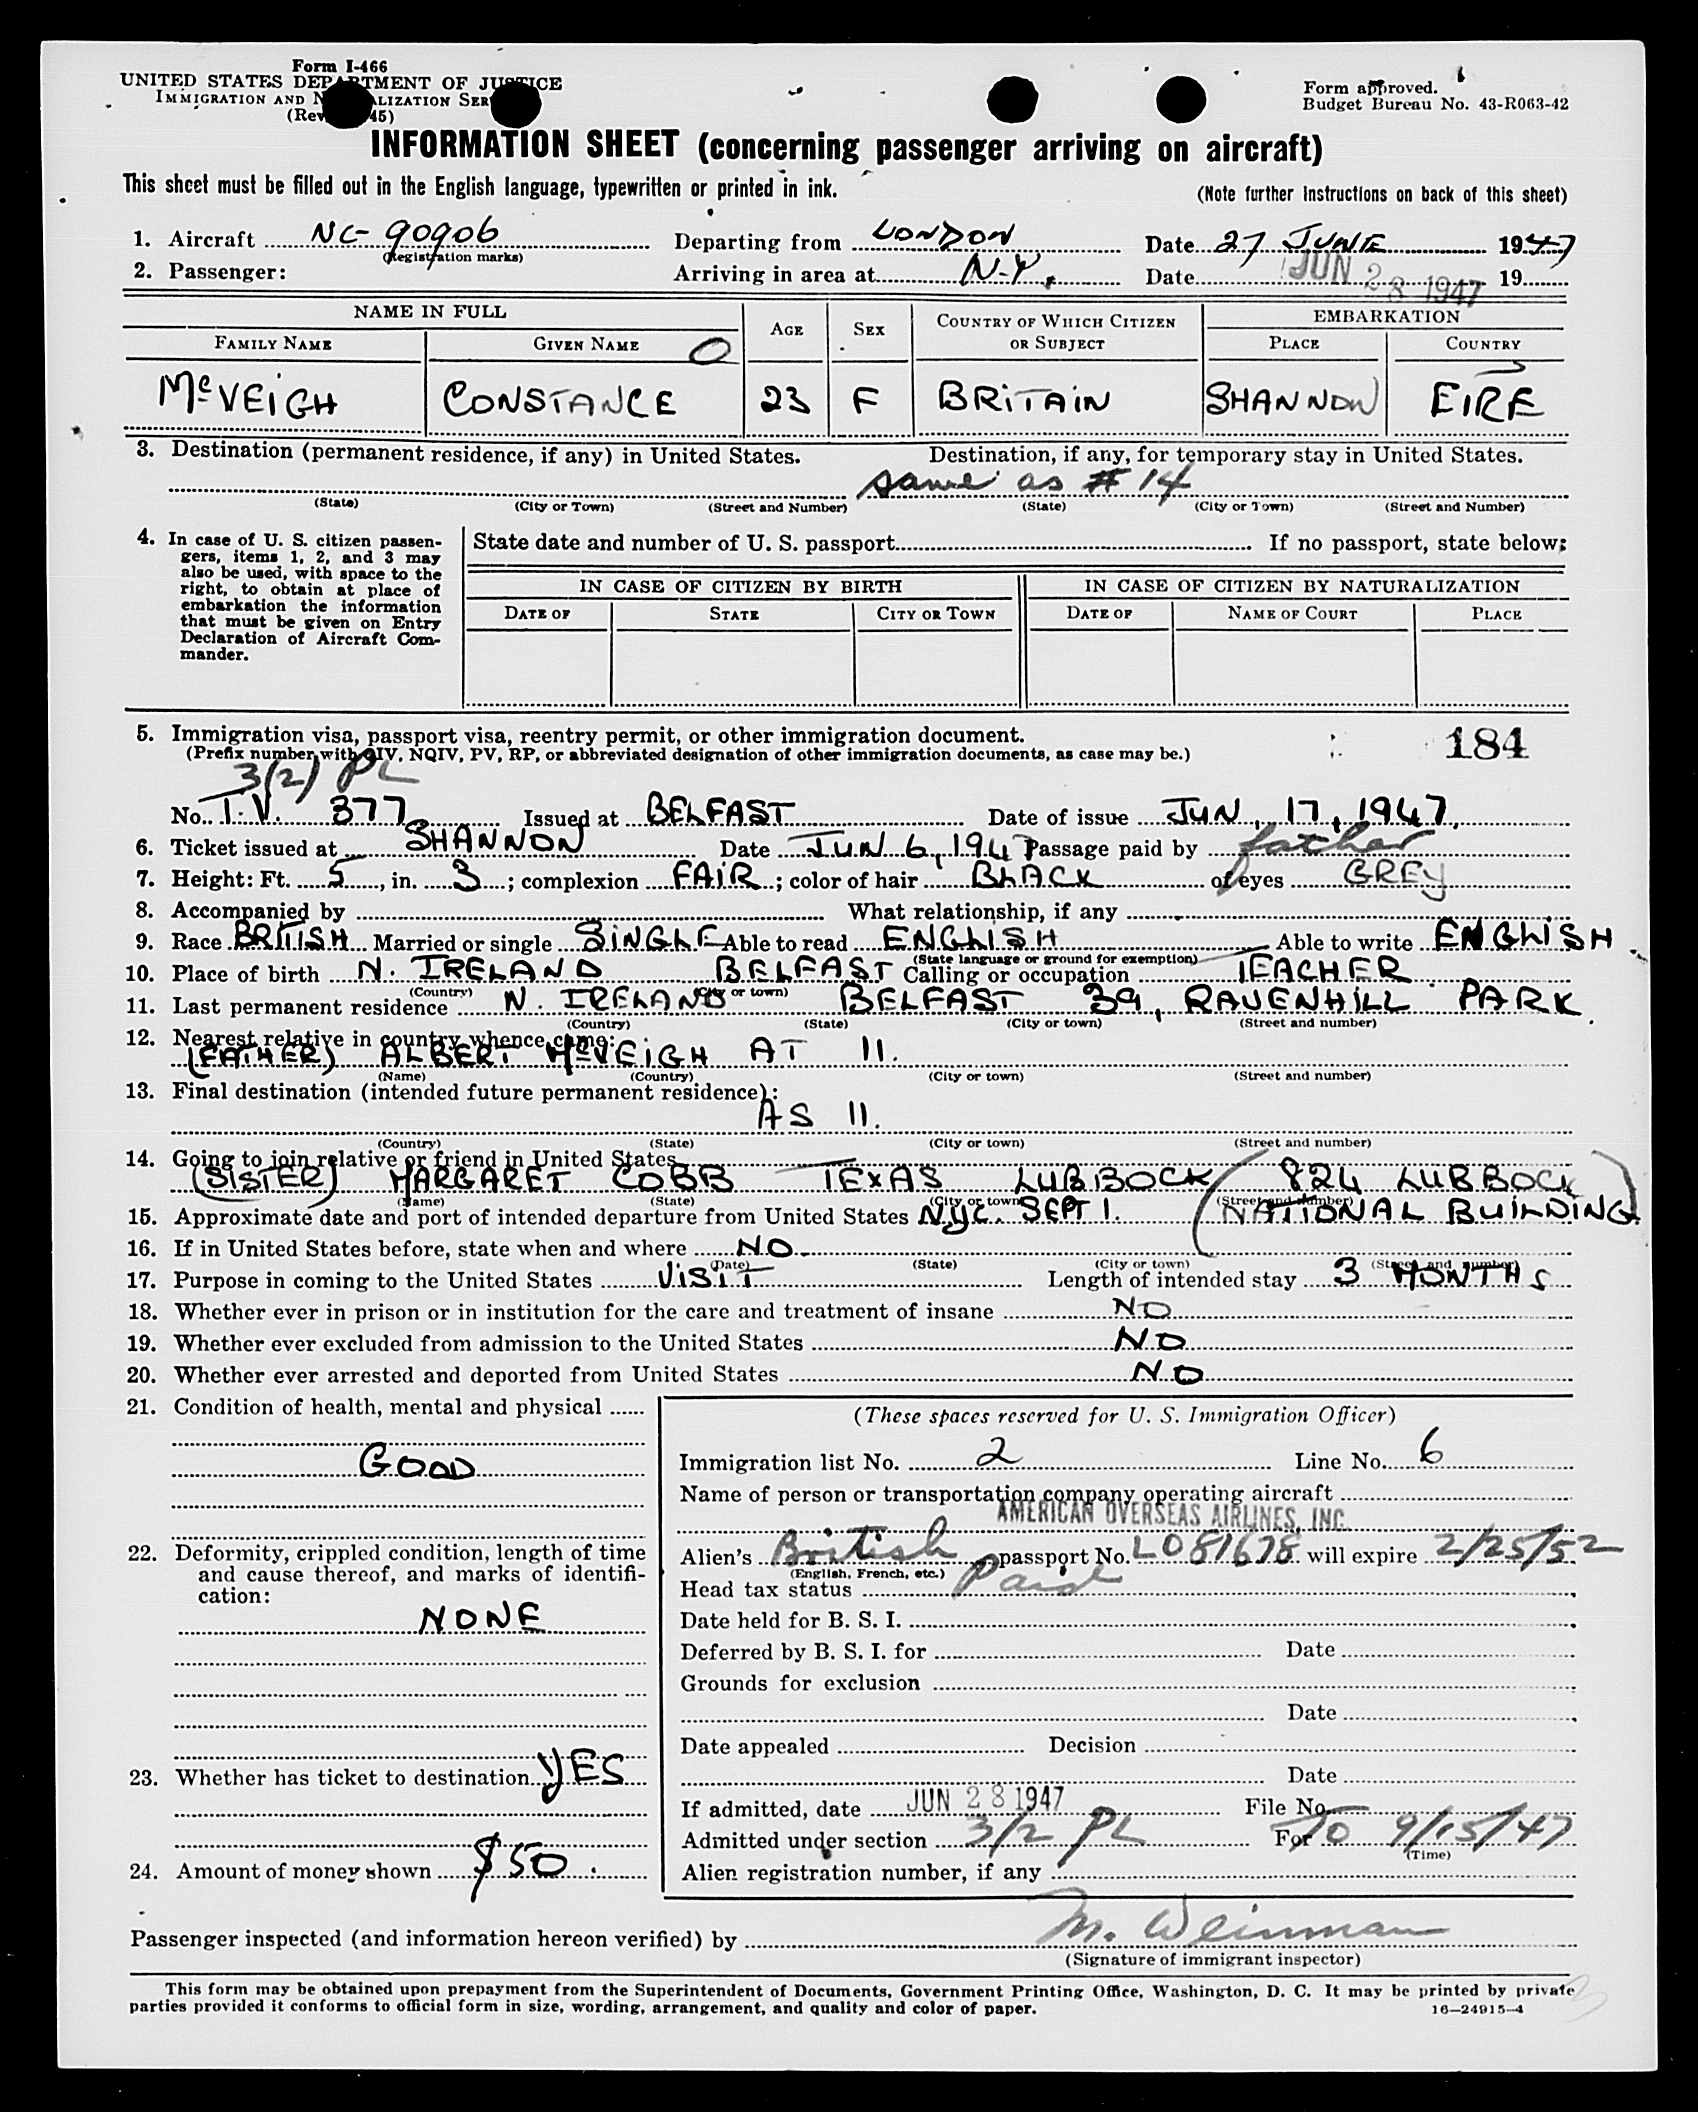 Form I-466
UNITED STATES DEPARTMENT OF JUSTICE
IMMIGRATION AND NATURALIZATION SERVICE
(Rev. 45)
Form approved.
Budget Bureau No. 43-R063-42
INFORMATION SHEET (concerning passenger arriving on aircraft)
This sheet must be filled out in the English language, typewritten or printed in ink.
(Note further instructions on back of this sheet)
1. Aircraft NC-90906 Departing from LONDON Date 27 JUNE 1947
(Registration marks)
2. Passenger: Arriving in area at N.Y. Date JUN 28 1947 19
NAME IN FULL AGE SEX COUNTRY OF WHICH CITIZEN OR SUBJECT EMBARKATION
FAMILY NAME GIVEN NAME PLACE COUNTRY
McVEIGH CONSTANCE 23 F BRITAIN SHANNON EIRE
3. Destination (permanent residence, if any) in United States. Destination, if any, for temporary stay in United States.
same as # 14
(State) (City or Town) (Street and Number) (State) (City or Town) (Street and Number)
4. In case of U. S. citizen passen-
gers, items 1, 2, and 3 may
also be used, with space to the
right, to obtain at place of
embarkation the information
that must be given on Entry
Declaration of Aircraft Com-
mander.
State date and number of U. S. passport If no passport, state below:
IN CASE OF CITIZEN BY BIRTH IN CASE OF CITIZEN BY NATURALIZATION
DATE OF STATE CITY OR TOWN DATE OF NAME OF COURT PLACE
5. Immigration visa, passport visa, reentry permit, or other immigration document.
(Prefix number with QIV, NQIV, PV, RP, or abbreviated designation of other immigration documents, as case may be.)
184
3(2) PL
No. T.V. 377 Issued at BELFAST Date of issue JUN, 17, 1947.
6. Ticket issued at SHANNON Date JUN 6, 1947 Passage paid by father
7. Height: Ft. 5, in. 3; complexion FAIR; color of hair BLACK of eyes GREY
8. Accompanied by What relationship, if any
9. Race BRITISH Married or single SINGLE Able to read ENGLISH Able to write ENGLISH
(State language or ground for exemption)
10. Place of birth N. IRELAND BELFAST Calling or occupation TEACHER
(Country) (City or town)
11. Last permanent residence N. IRELAND BELFAST 39, RAVENHILL PARK
(Country) (State) (City or town) (Street and number)
12. Nearest relative in country whence came:
(FATHER) ALBERT McVEIGH AT 11.
(Name) (Country) (City or town) (Street and number)
13. Final destination (intended future permanent residence):
AS 11.
(Country) (State) (City or town) (Street and number)
14. Going to join relative or friend in United States
(SISTER) MARGARET COBB TEXAS LUBBOCK (824 LUBBOCK
(Name) (State) (City or town) (Street and number)
NATIONAL BUILDING)
15. Approximate date and port of intended departure from United States NYC. SEPT 1.
16. If in United States before, state when and where NO
(Date) (State) (City or town) (Street and number)
17. Purpose in coming to the United States VISIT Length of intended stay 3 MONTHS
18. Whether ever in prison or in institution for the care and treatment of insane NO
19. Whether ever excluded from admission to the United States NO
20. Whether ever arrested and deported from United States NO
21. Condition of health, mental and physical
GOOD
22. Deformity, crippled condition, length of time
and cause thereof, and marks of identifi-
cation:
NONE
23. Whether has ticket to destination YES
24. Amount of money shown $50.
(These spaces reserved for U. S. Immigration Officer)
Immigration list No. 2 Line No. 6
Name of person or transportation company operating aircraft
AMERICAN OVERSEAS AIRLINES, INC.
Alien's British passport No. L081678 will expire 2/25/52
(English, French, etc.)
Head tax status Paid
Date held for B. S. I.
Deferred by B. S. I. for Date
Grounds for exclusion
Date
Date appealed Decision
Date
If admitted, date JUN 28 1947 File No.
Admitted under section 3/2 PL For TO 9/15/47
(Time)
Alien registration number, if any
Passenger inspected (and information hereon verified) by M. Weinman
(Signature of immigrant inspector)
This form may be obtained upon prepayment from the Superintendent of Documents, Government Printing Office, Washington, D. C. It may be printed by private
parties provided it conforms to official form in size, wording, arrangement, and quality and color of paper.
16—24915-4